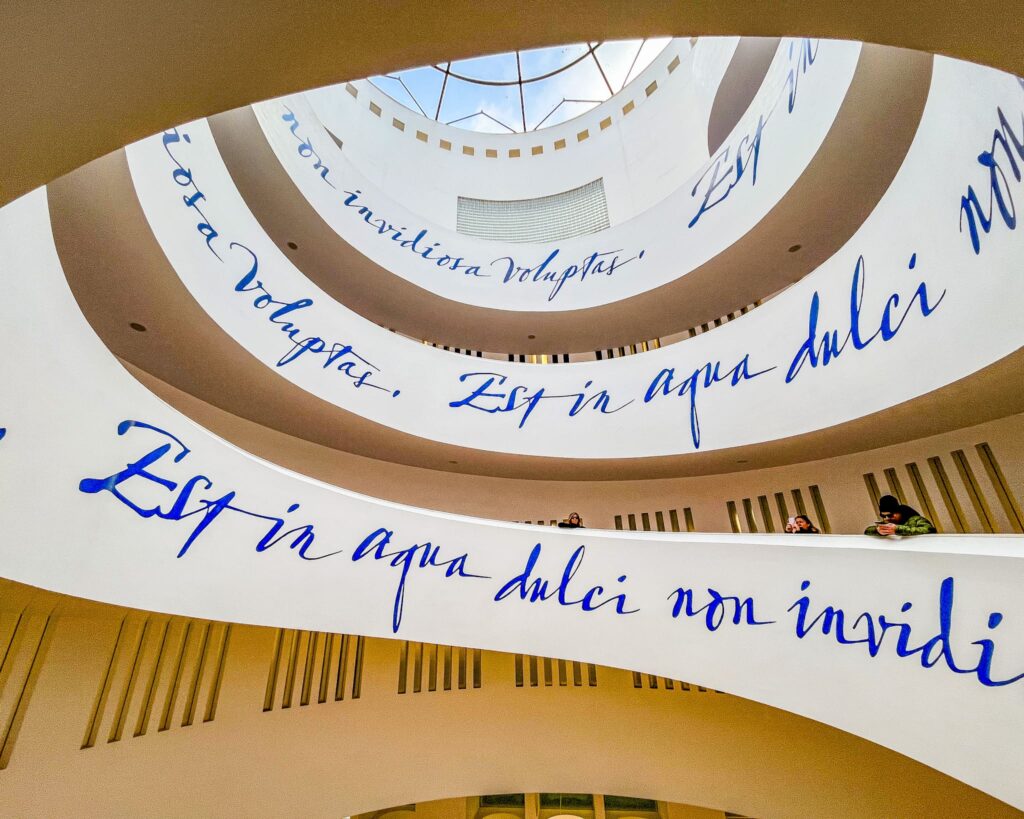 non invidiosa voluptas. Est in
iosa voluptas. Est in aqua dulci non
Est in aqua dulci non invidi